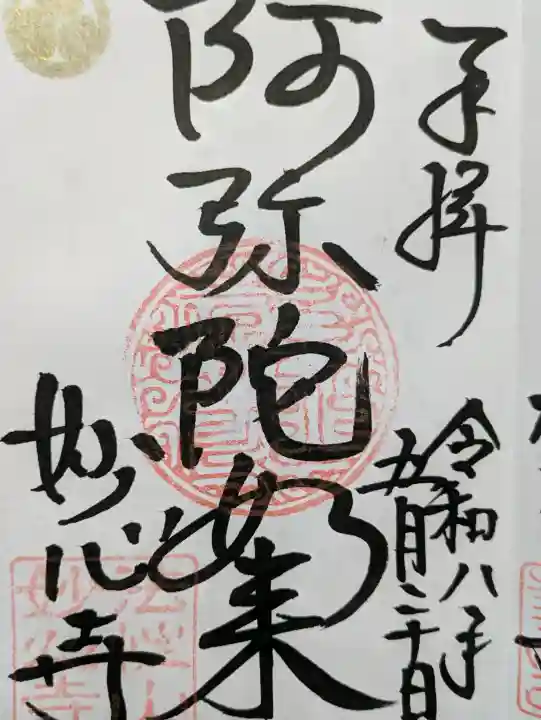 奉拝
令和八年
五月二十日
阿弥陀如来
妙心寺